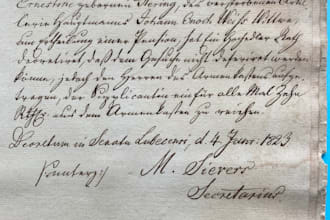 Ernestine gebornen Hering, des verstorbenen Artil-
lerie Hauptmanns Johann Enoch Witwe,
um Ertheilung einer Pension, hat Ein Hochedler Rath
decretiret, daß dem Gesuche nicht deferiret werden
könne, jedoch den Herren des Armenkastens aufge-
tragen, der Supplicantin ein für alle Mal Zehn
aus dem Armenkasten zu reichen.
Decretum in Senatu Lubecensi, d. 4 Juni 1823
M. Sievers
Secretarius